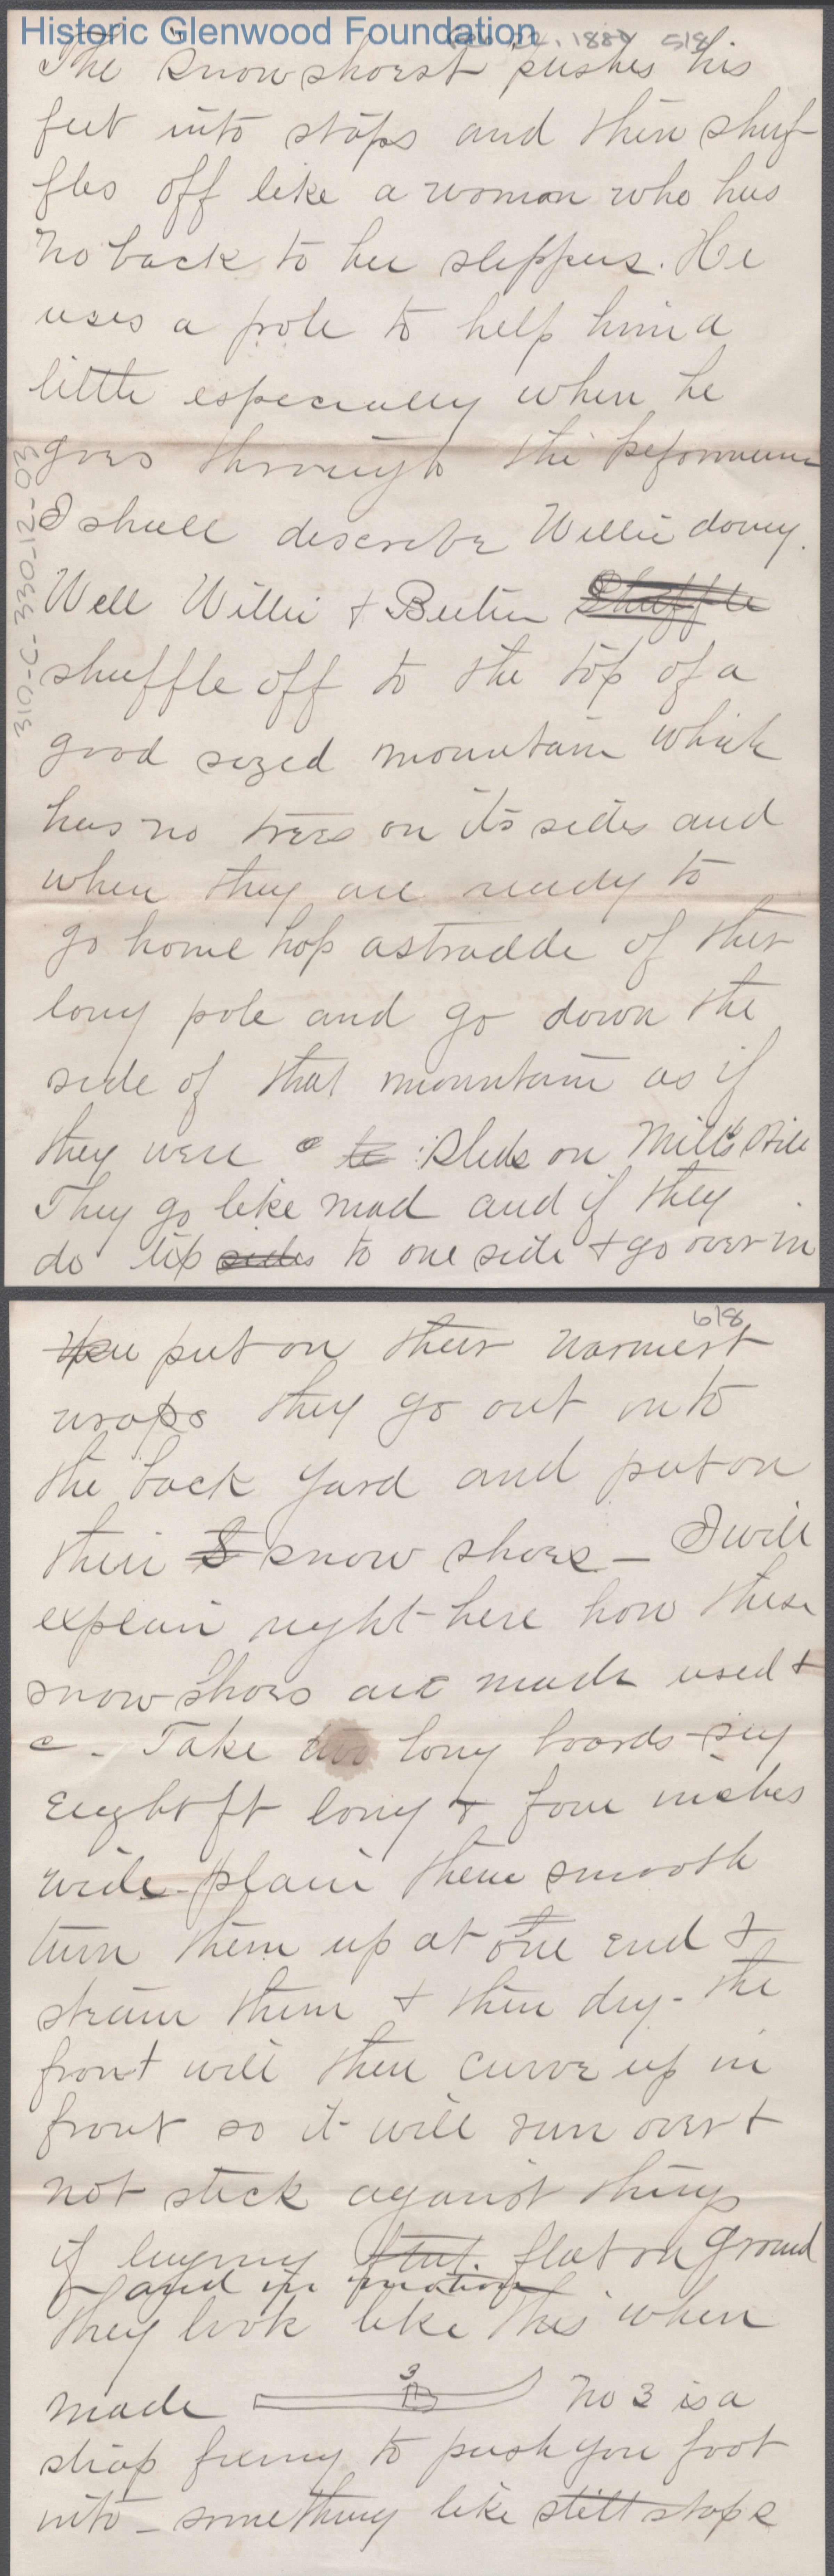 Historic Glenwood Foundation
1884 5/8
The snowshoest pushes his
feet into stops and then shuf-
fles off like a woman who has
no back to her slippers. He
uses a pole to help him a
little especially when he
goes through the peformance
I shall describe Willie doing.
Well Willie + Bertie Shuffle
shuffle off to the top of a
good sized mountain which
has no trees on its sides and
when they are ready to
go home hop astradde of their
long pole and go down the
side of that mountain as if
they were sleds on Mill's Hill
They go like mad and if they
do tip sides to one side + go over in
310-C-330-12-03
6/8
put on their warmest
wraps they go out into
the back yard and put on
their S snow shoes — I will
explain right here how these
snow shoes are made used +
c - Take two long boards say
eight ft long + four inches
wide - plain them smooth
turn them up at one end +
steam them + then dry - the
front will then curve up in
front so it will run over +
not stick against things
if laying flat on ground
and in motion
They look like this when
3
made No 3 is a
strap fixing to push you foot
into - something like stilt stops